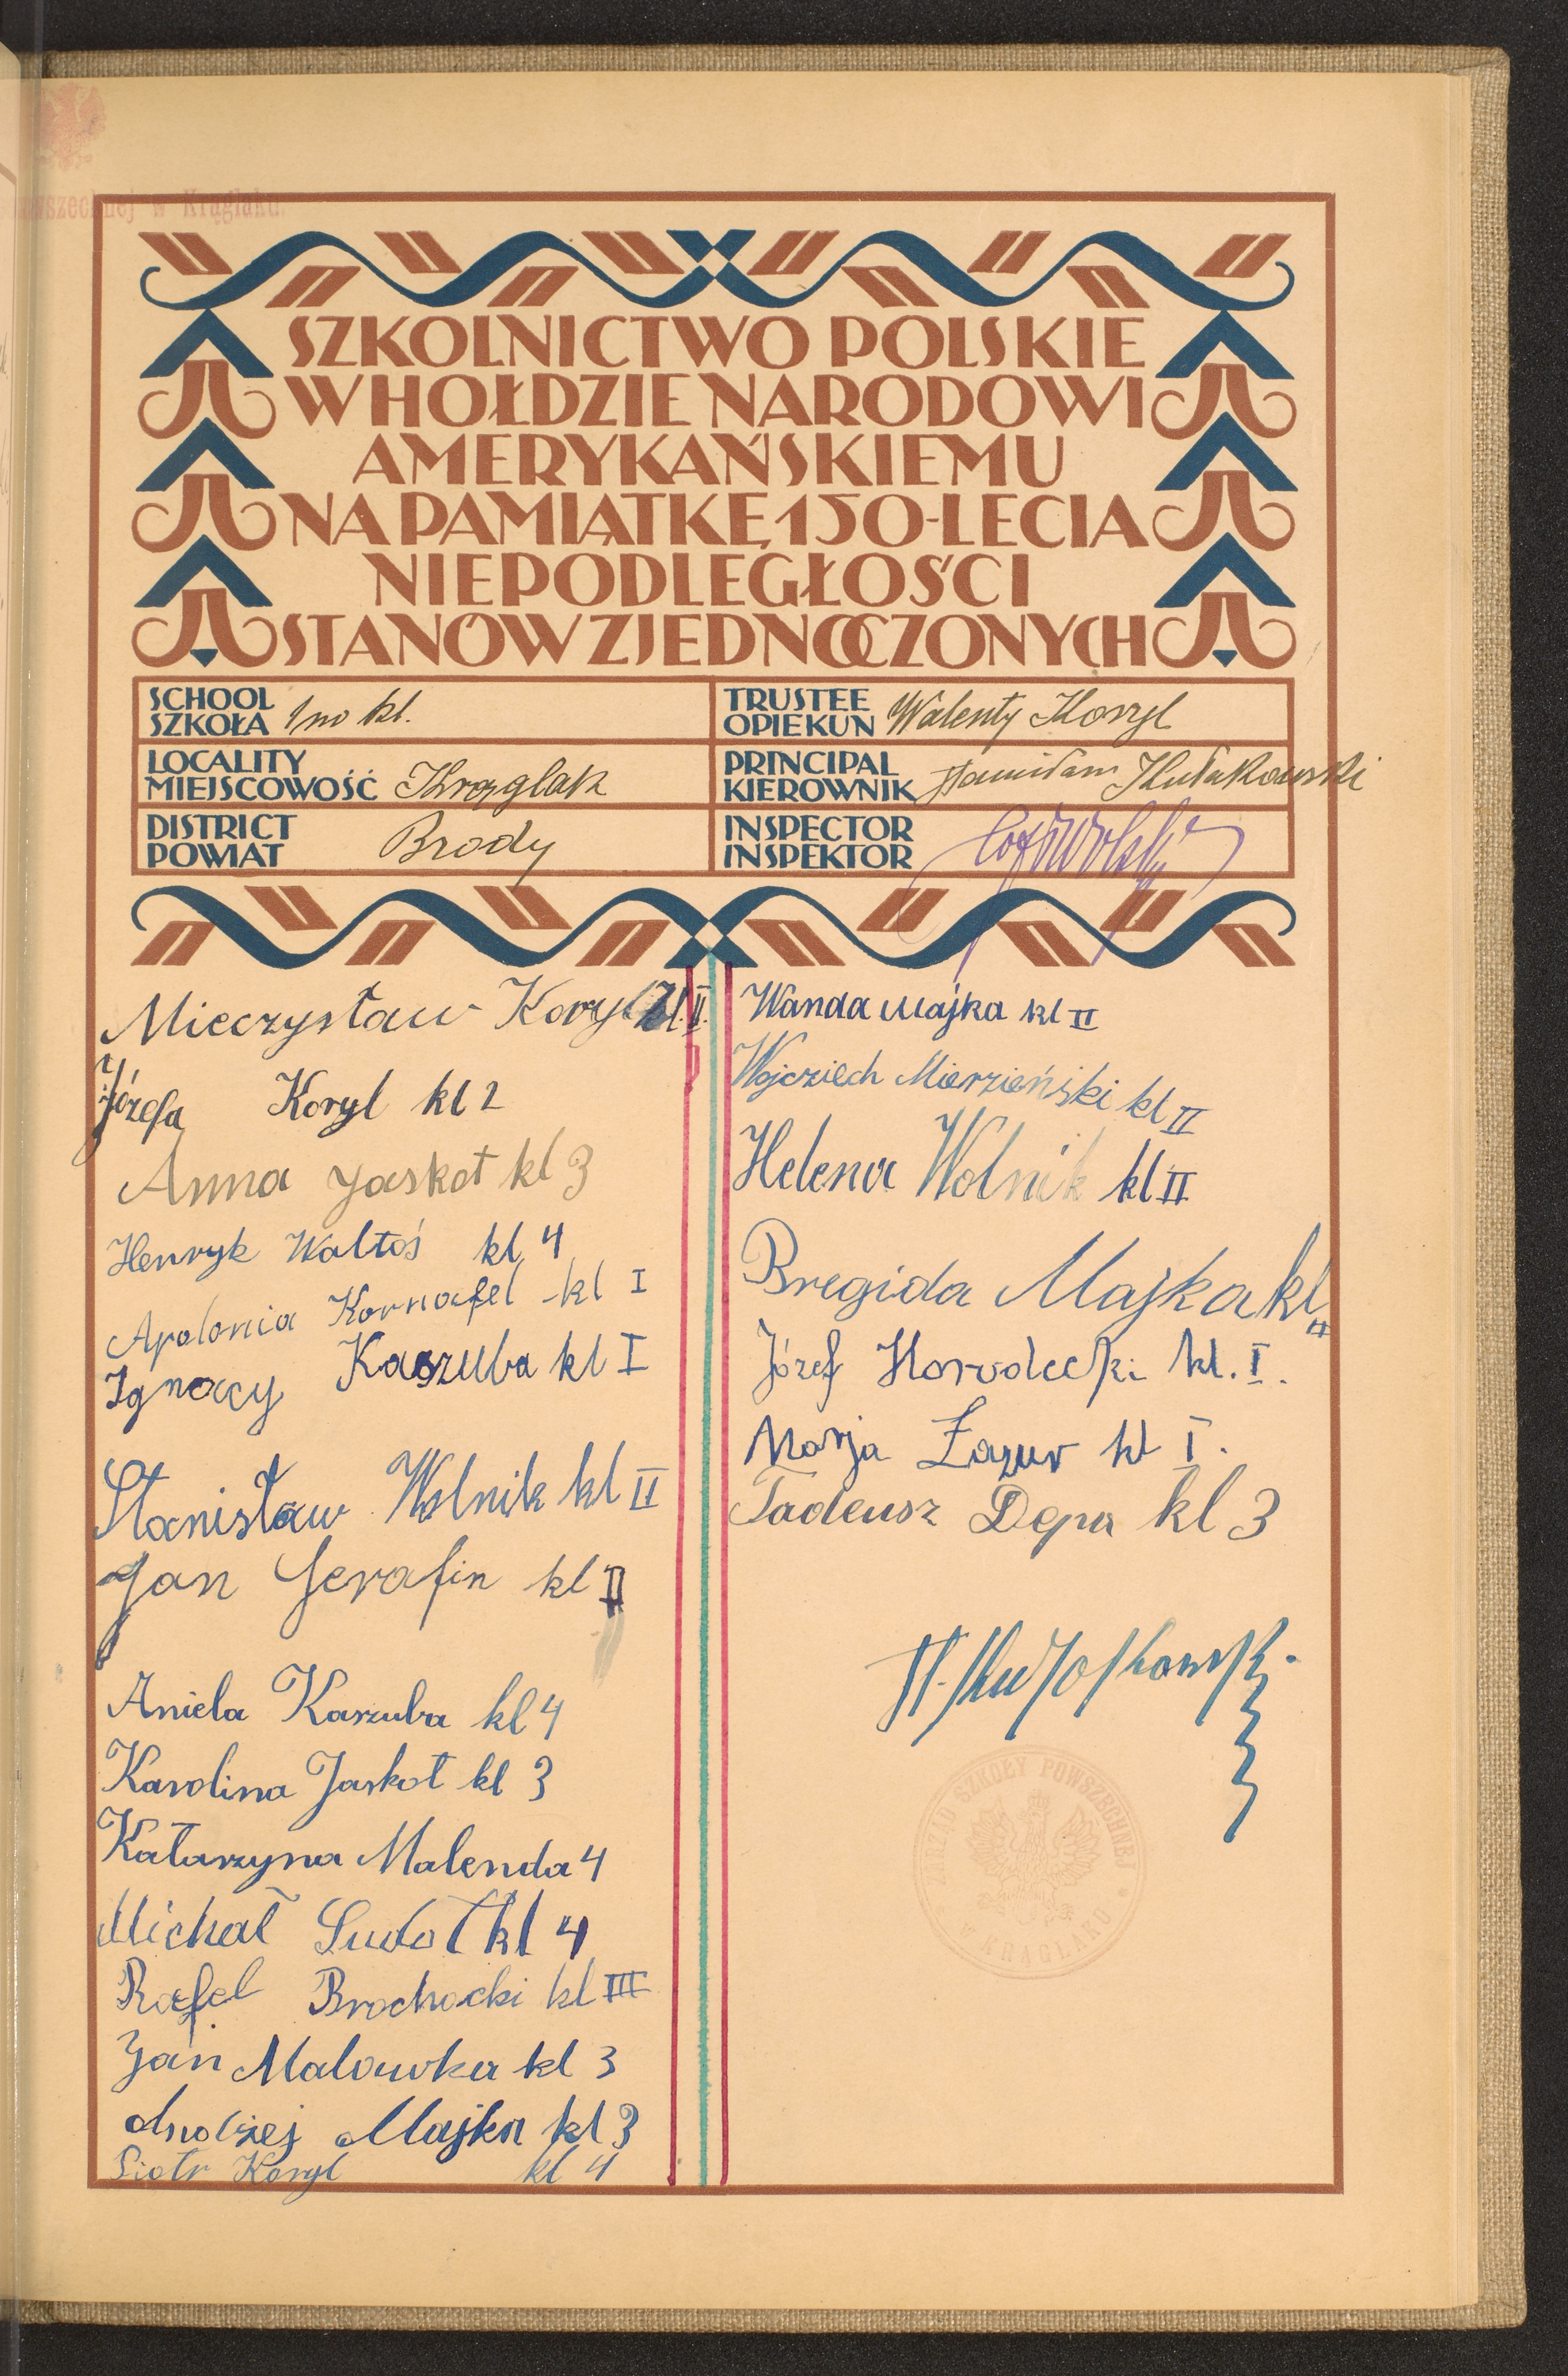 szechnej w Krąglaku.
SZKOLNICTWO POLSKIE
W HOŁDZIE NARODOWI
AMERYKAŃSKIEMU
NA PAMIĄTKĘ 150-LECIA
NIEPODLEGŁOŚCI
STANÓW ZJEDNOCZONYCH
SCHOOL
SZKOŁA 1 no kl.
TRUSTEE
OPIEKUN Walenty Koryl
LOCALITY
MIEJSCOWOŚĆ Krąglak
PRINCIPAL
KIEROWNIK Stanisław Kułakowski
DISTRICT
POWIAT Brody
INSPECTOR
INSPEKTOR
Mieczysław Koryl kl. II.
Józefa Koryl kl 2
Anna Jaskot kl 3
Henryk Waltoś kl 4
Apolonia Kornafel kl I
Ignacy Kaszuba kl I
Stanisław Wolnik kl II
Jan Serafin kl II
Aniela Kaszuba kl 4
Karolina Jaskot kl 3
Katarzyna Malenda 4
Michał Sudoł kl 4
Rafel Brochocki kl III
Jan Malowka kl 3
Andrzej Majka kl 3
Piotr Koryl kl 4
Wanda Majka kl II
Wojciech Mierzieński kl II
Helena Wolnik kl II
Bregida Majka kl II
Józef Horodecki kl. I.
Marja Łazur kl I.
Tadeusz Depa kl 3
ZARZĄD SZKOŁY POWSZECHNEJ
W KRĄGLAKU